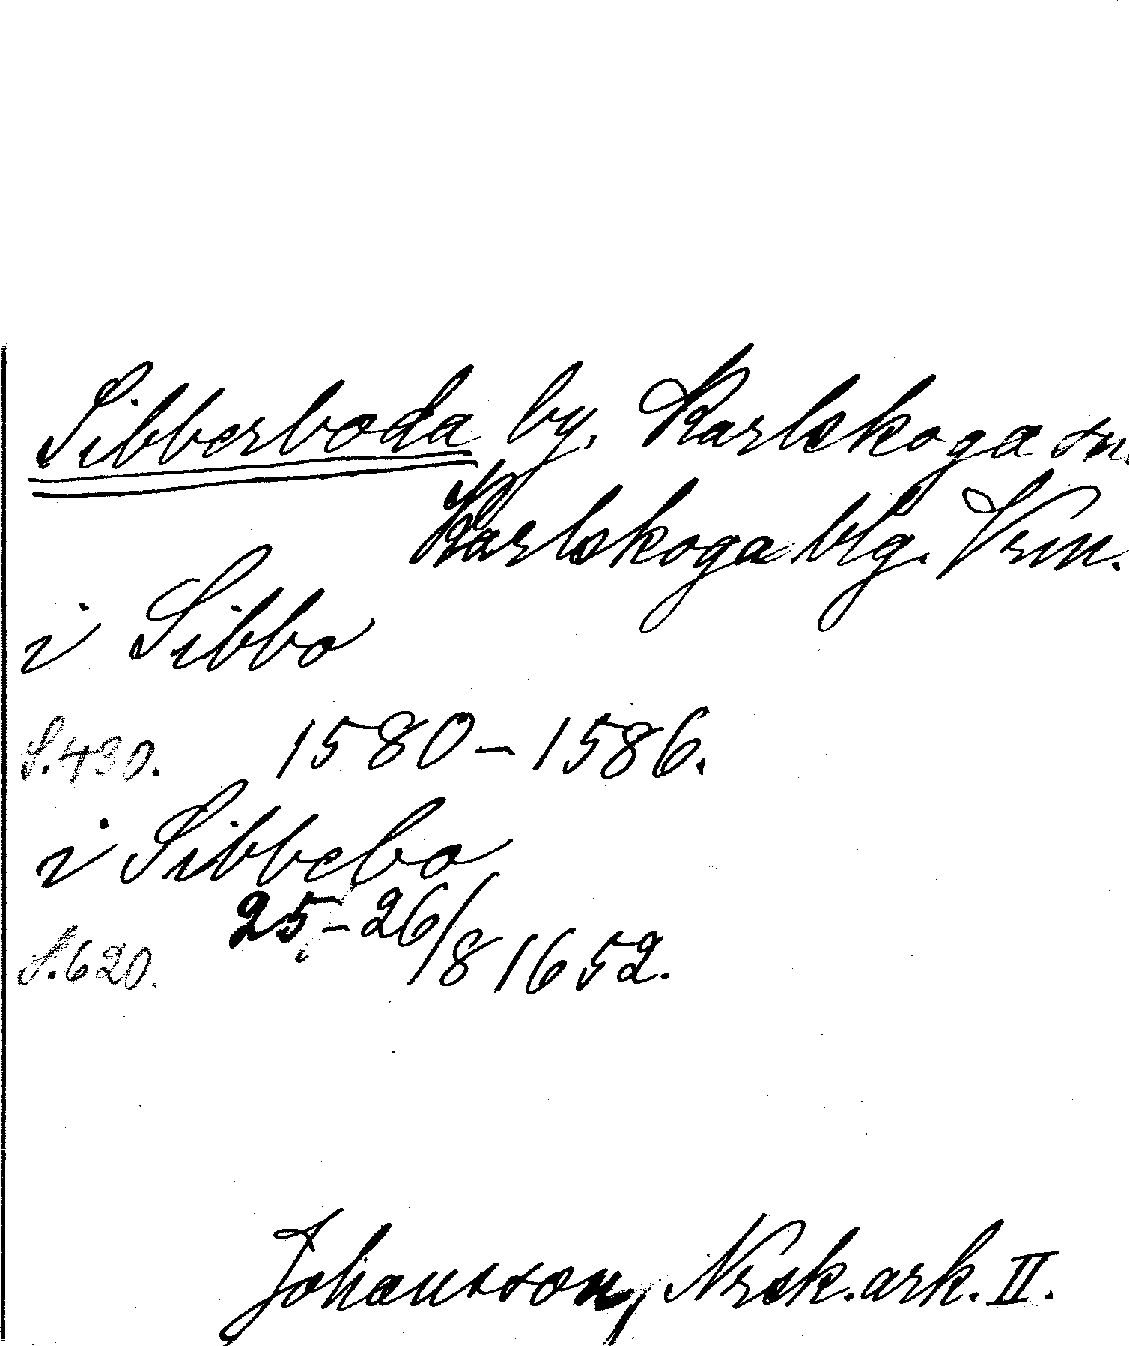 Sibberboda by. Karlskoga sn.
Karlskoga blg. Vrm.
i Sibbo
S.430. 1580-1586.
i Sibbebo
S.620. 25-26/8 1652.
Johansson, Nrsk. ark. II.